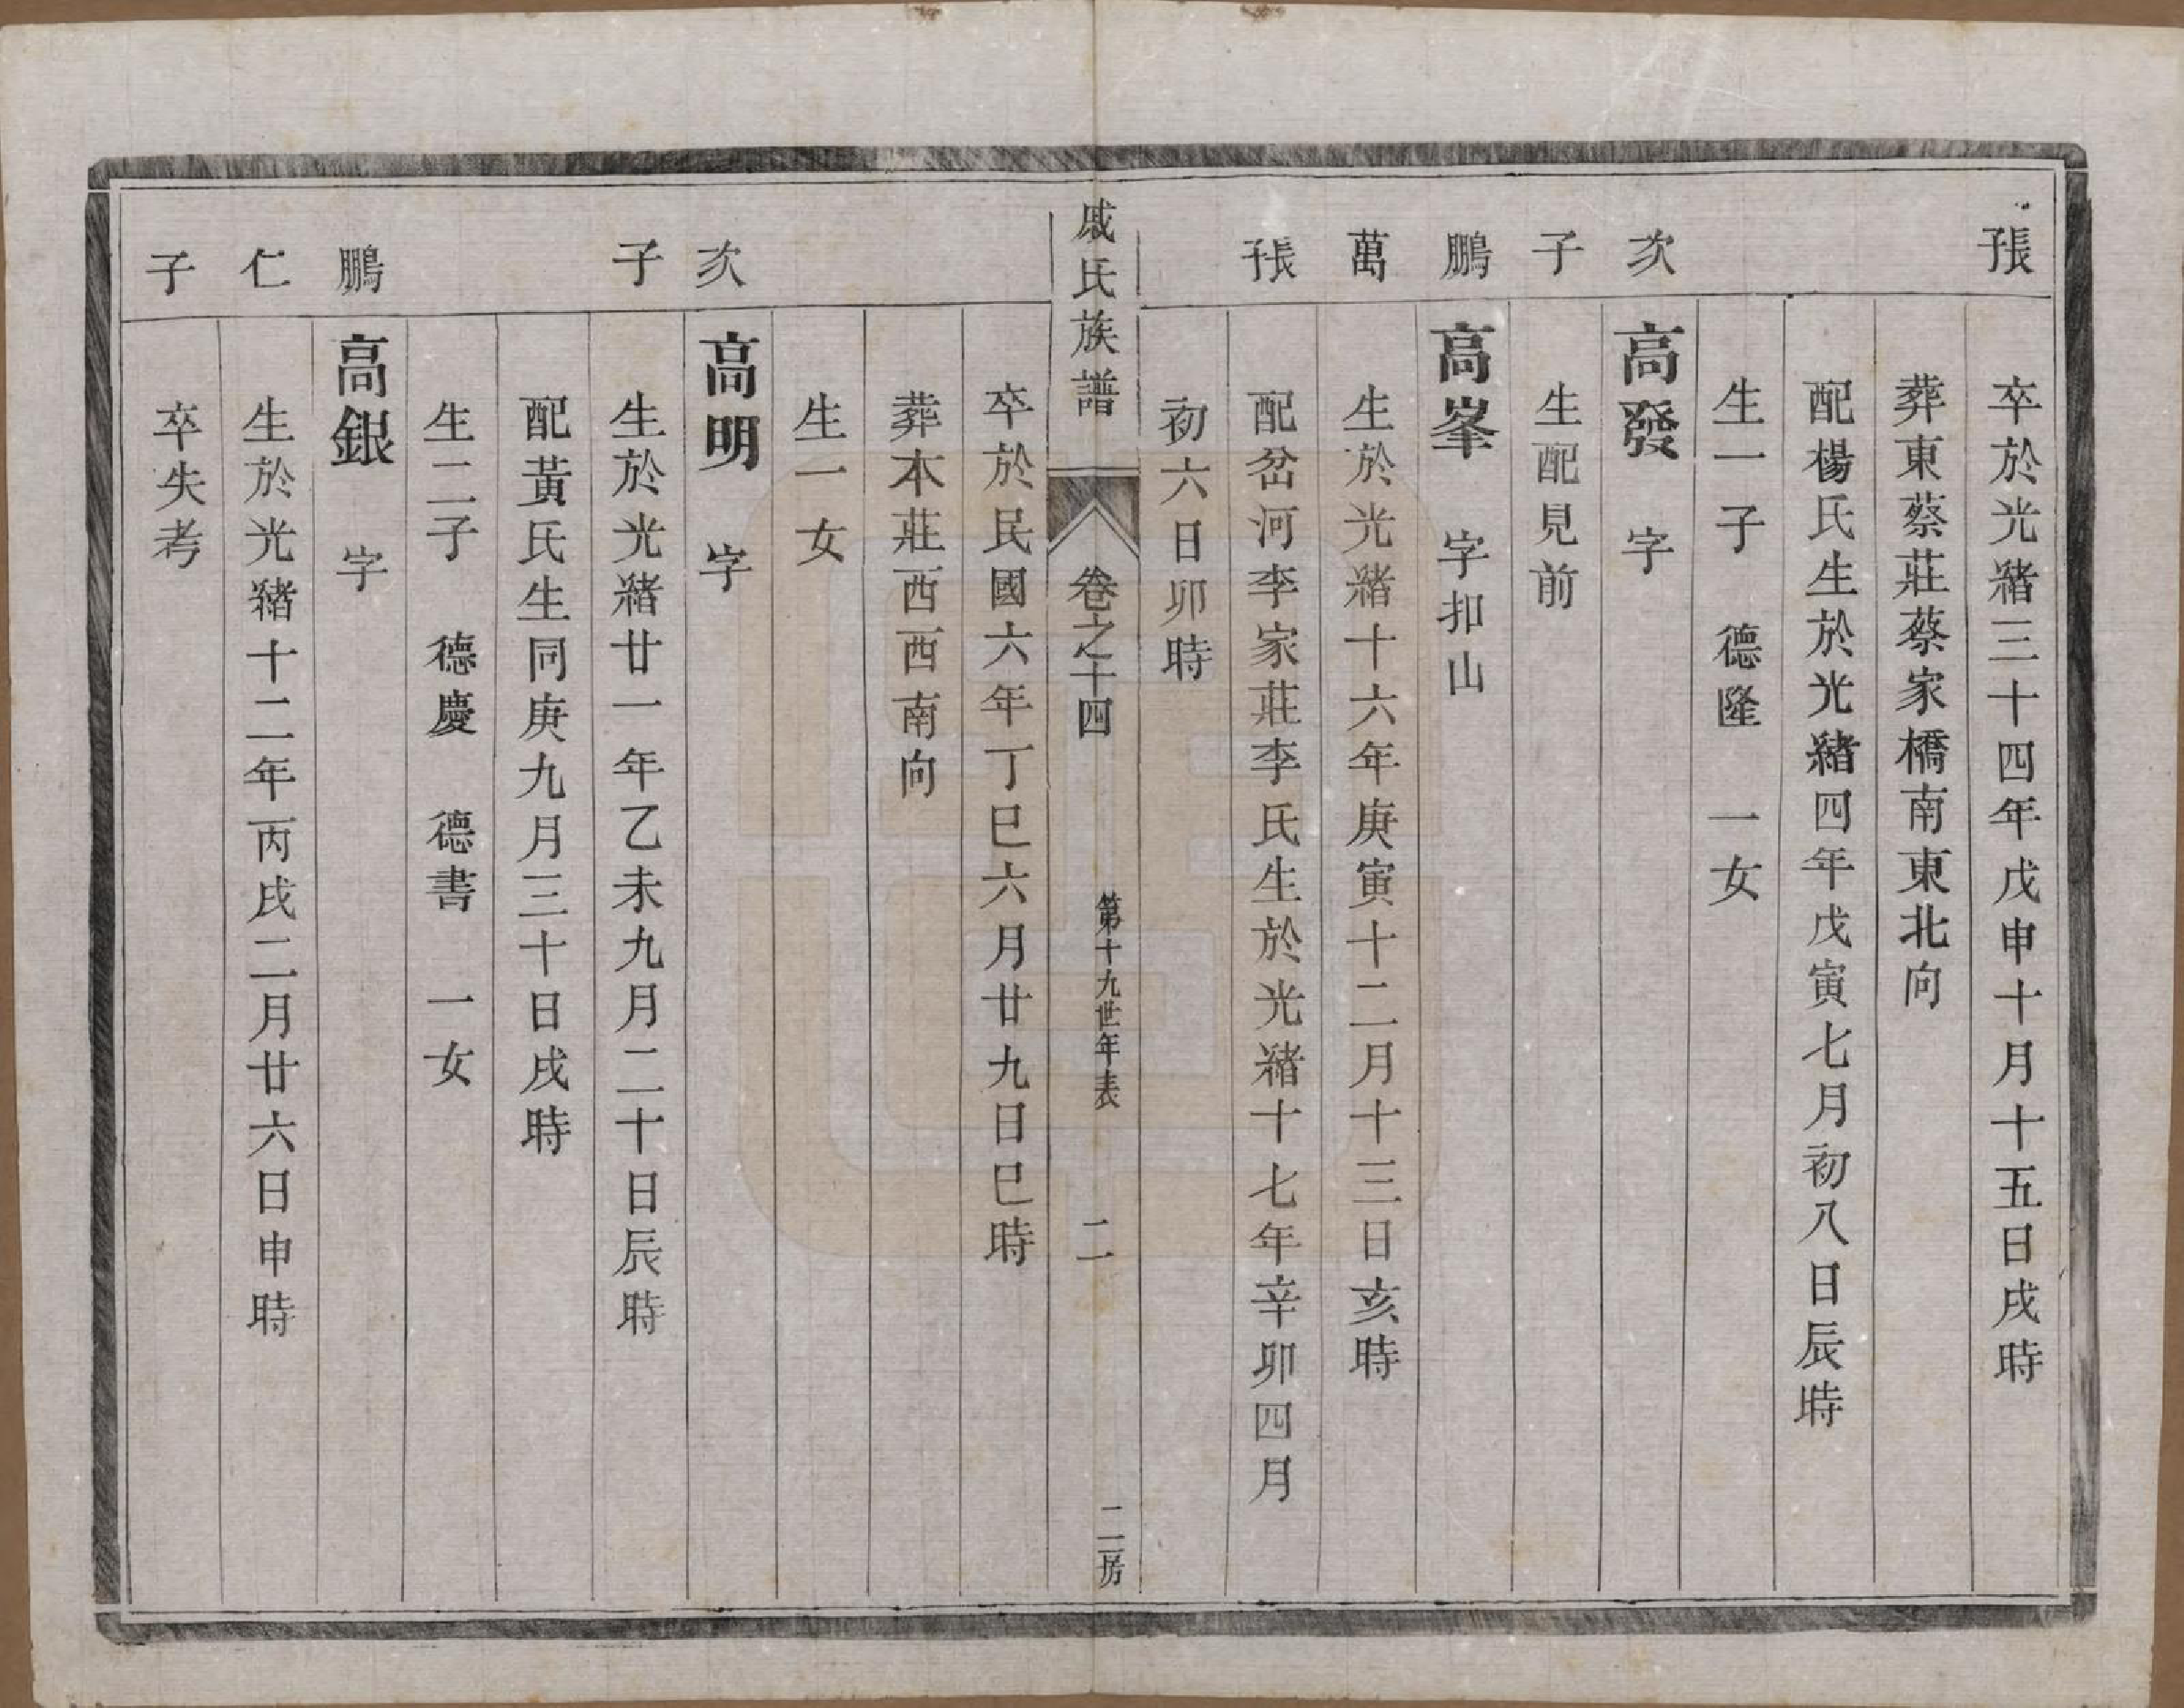 張
卒於光緒三十四年戊申十月十五日戌時
葬東蔡莊蔡家橋南東北向
配楊氏生於光緒四年戊寅七月初八日辰時
生一子　德隆　一女
次
高發　字
子
生配見前
鵬
高峯　字扣山
萬
生於光緒十六年庚寅十二月十三日亥時
張
配岔河李家莊李氏生於光緒十七年辛卯四月
初六日卯時
戚氏族譜　卷之十四　第十九世年表　二　二房
卒於民國六年丁巳六月廿九日巳時
葬本莊西西南向
生一女
次
高明　字
子
生於光緒廿一年乙未九月二十日辰時
配黃氏生同庚九月三十日戌時
生二子　德慶　德書　一女
鵬
高銀　字
仁
生於光緒十二年丙戌二月廿六日申時
子
卒失考